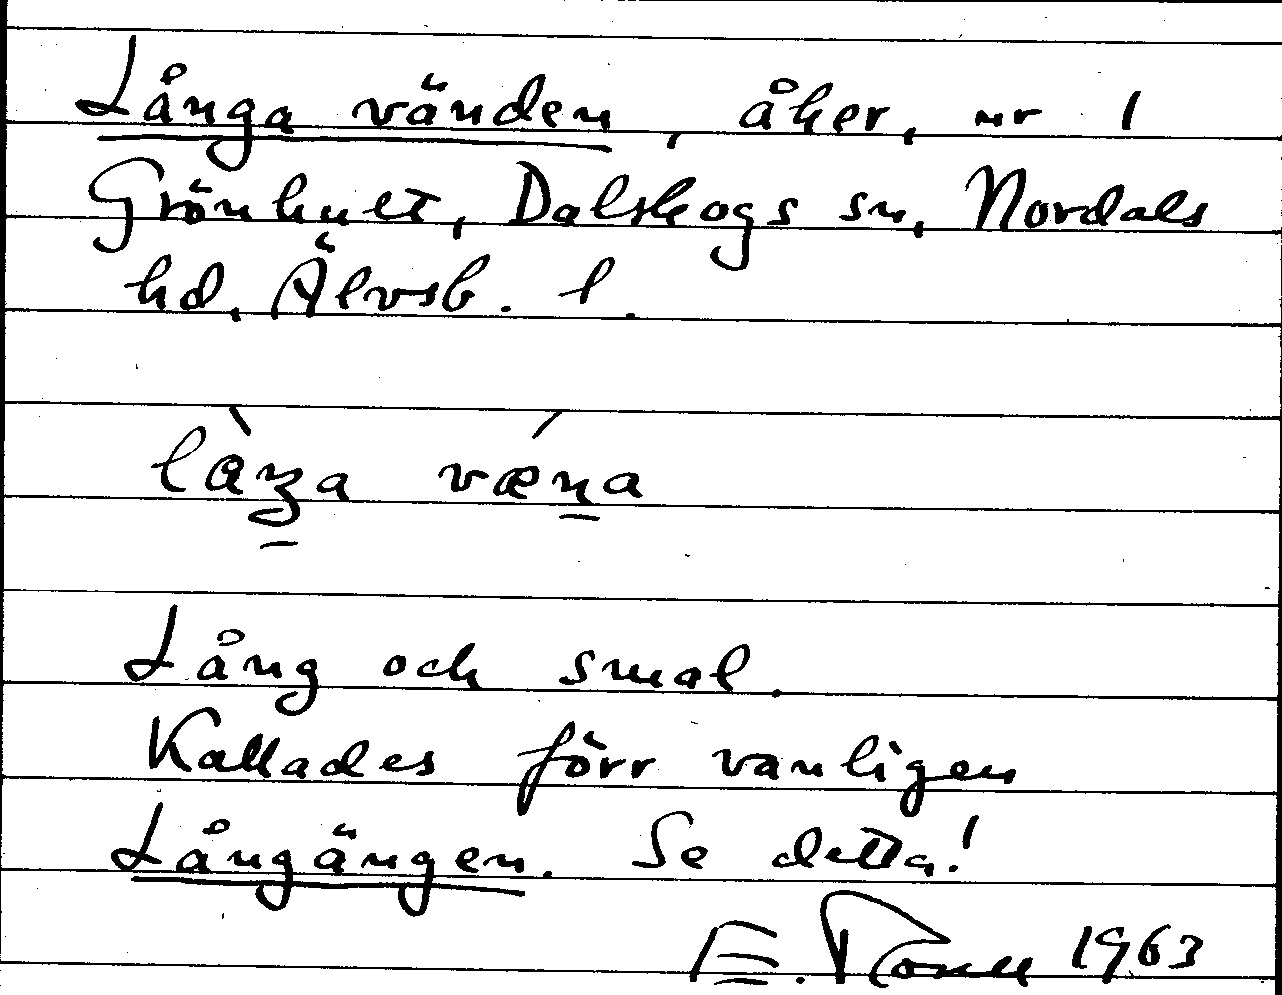 Långa vänden, åker, nr 1
Grönhult, Dalskogs sn, Nordals
hd, Älvsb. l.
làŋa vǽna
Lång och smal.
Kallades förr vanligen
Långängen. Se detta!
E. 1963